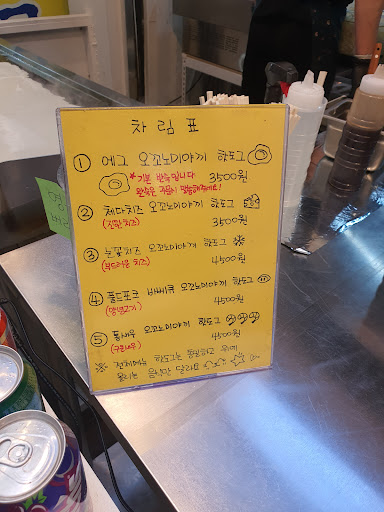 차림표
① 에그 오꼬노미야끼 핫도그
*기본 반숙입니다!
완숙은 주문시 말씀해주세요!
3500원
② 체다치즈 오꼬노미야끼 핫도그
(진한치즈)
3500원
③ 눈꽃치즈 오꼬노미야끼 핫도그
(부드러운 치즈)
4500원
④ 풀드포크 바베큐 오꼬노미야끼 핫도그
4500원
⑤ 통새우 오꼬노미야끼 핫도그
4500원
※ 전메뉴 핫도그는 동일하고 위에
올리는 음식만 달라요